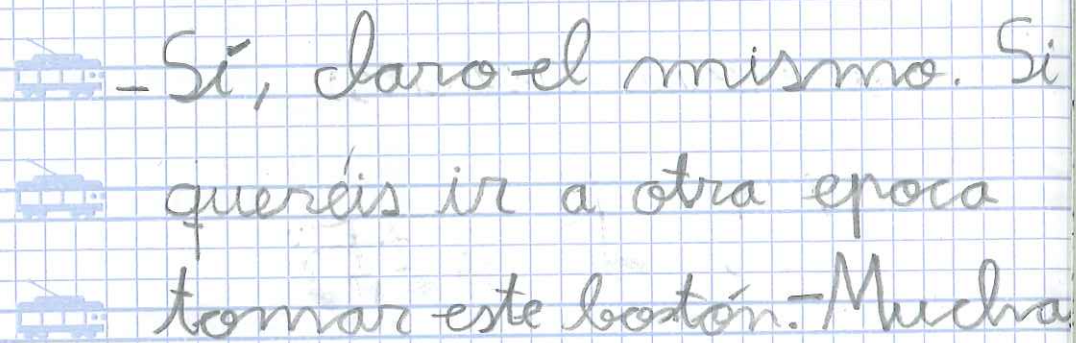 - Sí, claro-el mismo. Si
queréis ir a otra epoca
tomar este bostón.-Mucha